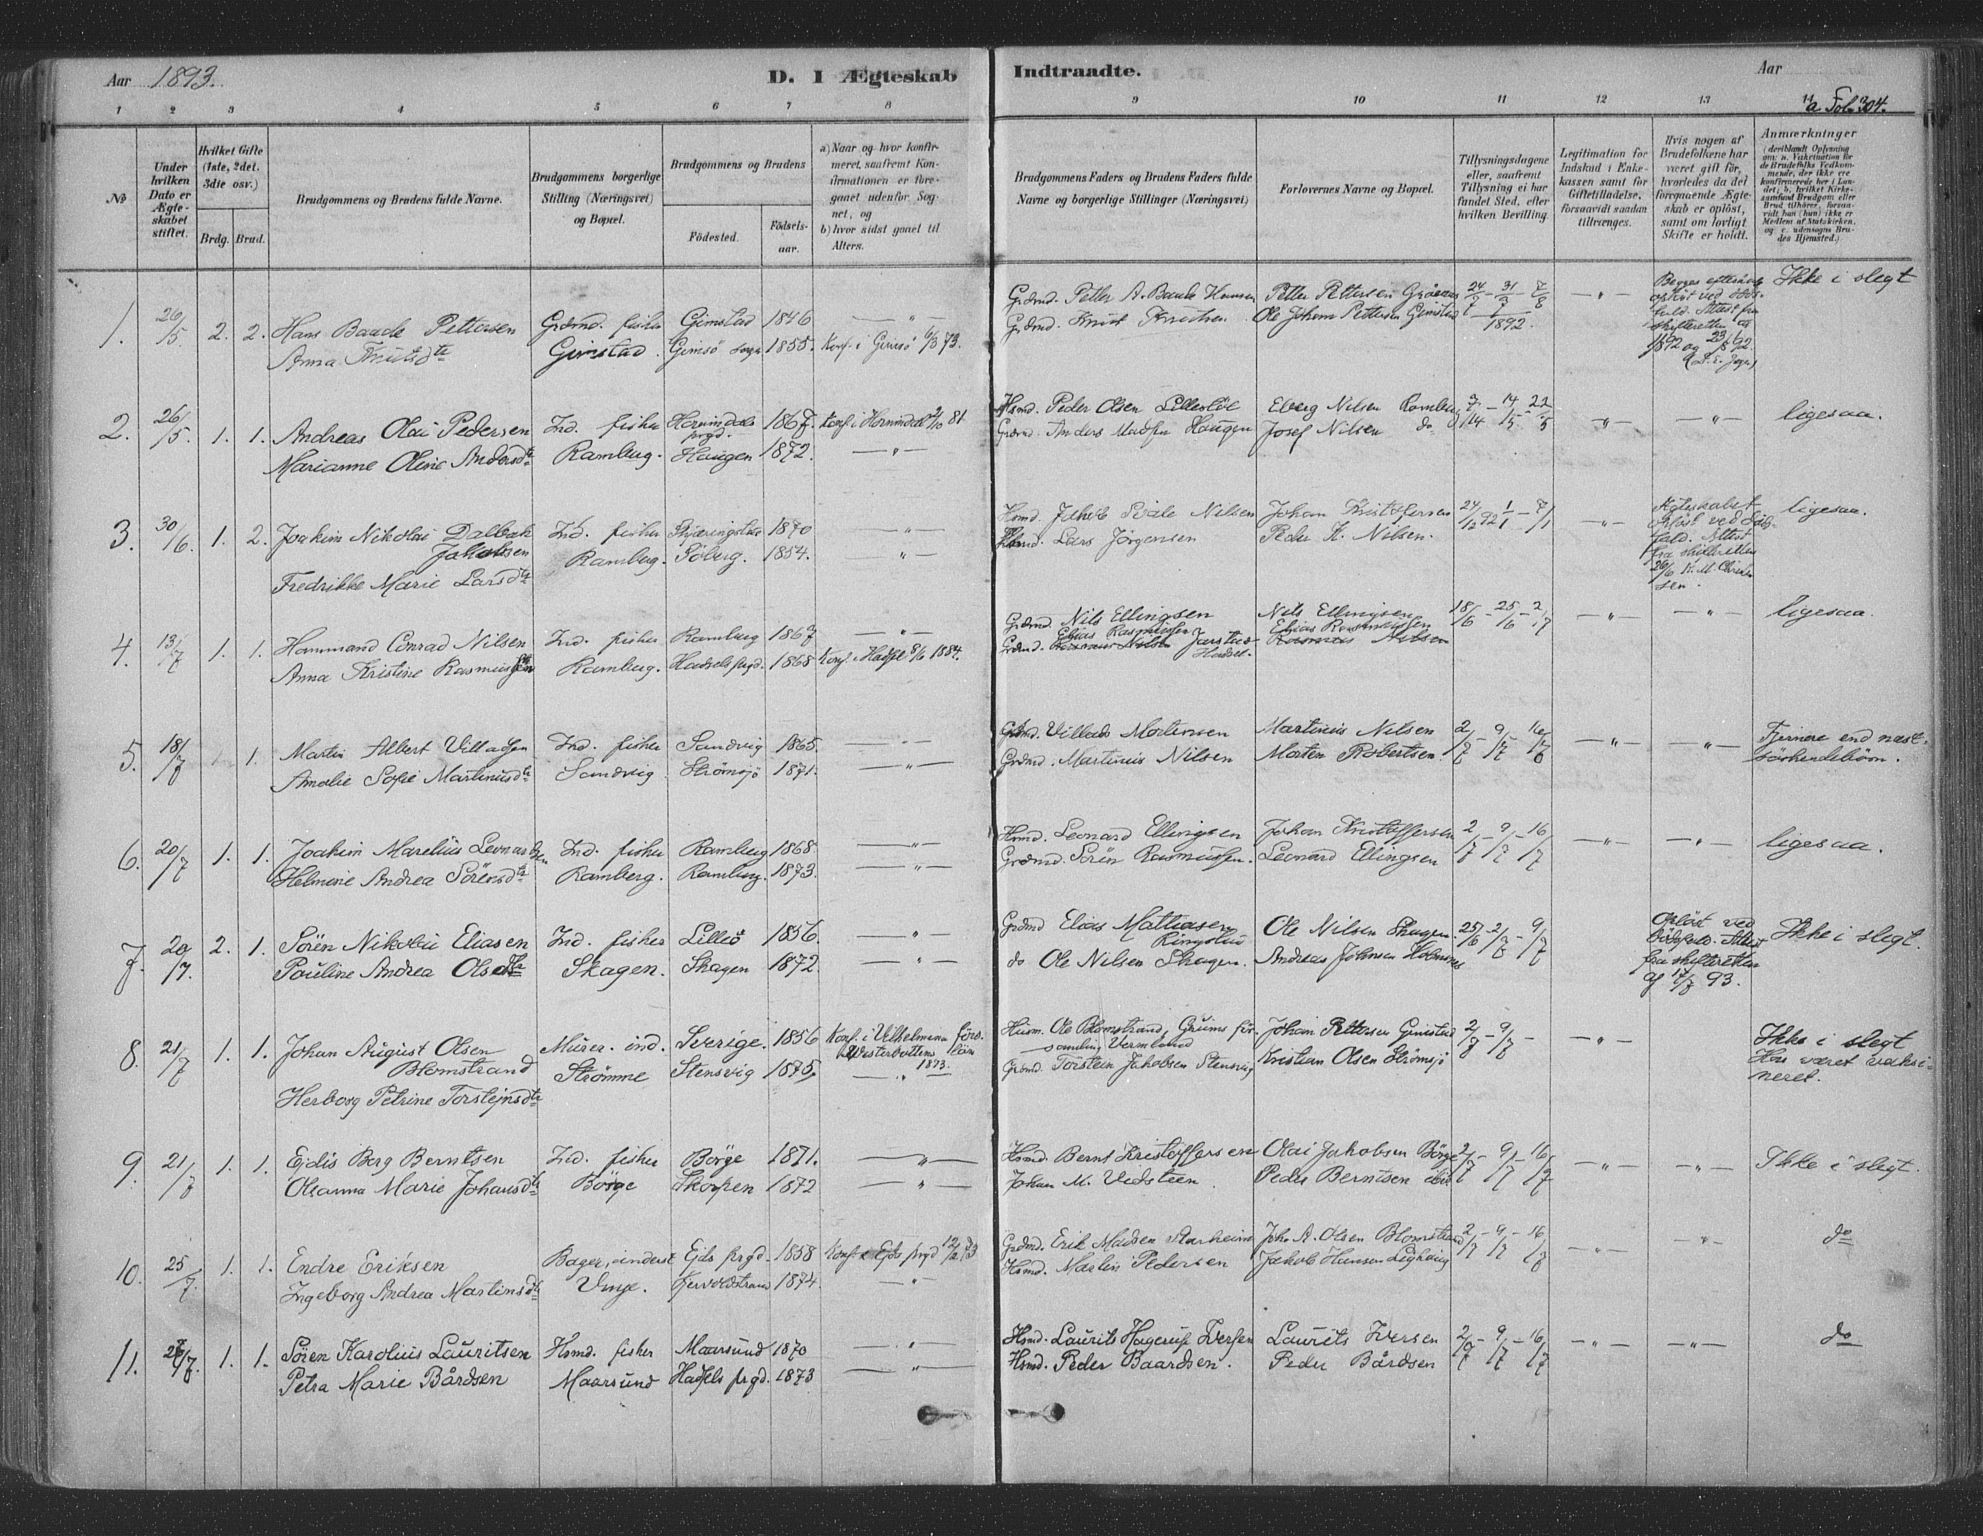 Aar 1893.
D. I Ægteskab Indtraadte.
Aar
1 2 3 4 5 6 7 8 9 10 11 12 13 14
a Fol. 304.
No
Under hvilken Dato er Ægteskabet stiftet.
Hvilket Gifte (1ste, 2det, 3die osv.)
Brdg. Brud.
Brudgommens og Brudens fulde Navne.
Brudgommens borgerlige Stilling (Næringsvei) og Bopæl.
Brudgommens og Brudens
Fødested. Fødselsaar.
a) Naar og hvor konfirmeret, saafremt Konfirmationen er foregaaet udenfor Sognet, og
b) hvor sidst gaaet til Alters.
Brudgommens Faders og Brudens Faders fulde Navne og borgerlige Stillinger (Næringsvei)
Forlovernes Navne og Bopæl.
Tillysningsdagene eller, saafremt Tillysning ei har fundet Sted, efter hvilken Bevilling.
Legitimation for Indskud i Enkekassen samt for Giftetilladelse, forsaavidt saadan tiltrænges.
Hvis nogen af Brudefolkene har været gift før, hvorledes da det foregaaende Ægteskab er opløst, samt om lovligt Skifte er holdt.
Anmærkninger
(deriblandt Oplysning om: a. Vakcination for de Brudefolks Vedkommende, der ikke ere konfirmerede her i Landet; b. hvilket Kirkesamfund Brudgom eller Brud tilhører, forsaavidt han (hun) ikke er Medlem af Statskirken, og c. udensogns Brudes Hjemsted.)
1. 26/5 2. 2. Hans Baade Pettersen Grdmd. fisher Gimstad 1846 — " — Grdmd. Petter A. Baade Hansen Petter Pettersen 24/7 – 31/7 – 7/8 — " — Ikke i slegt
Anna Knutsdtr Gimstad. Gimsö sogn 1855. Konf. i Gimsö 6/3 73. Grdmd. Knut Ole Johan Pettersen Gimstad 1892.
2. 26/5. 1. 1. Andreas Olai Pedersen Ind. fisher Hornindals prgd. 1867. Konf. i Hornindal 2/10 81 Hsmd. Peder Olsen Elberg Nilsen Ramberg — " — — " — ligesaa.
Marianne Oline Andersdtr Ramberg. Haugen 1872. — " — Grdmd. Anders Madsen Haugen Josef Nilsen do
3. 30/6. 1. 2. Joakim Nikolai Dalbak Jakobsen Ind. fisher 1870 — " — Hsmd. Nilsen Johan Kristoffersen 24/12 92 1/1 – 7/1 — " — ligesaa.
Fredrikke Marie Larsdtr Ramberg. Söberg. 1854. — " — Hsmd. Lars Jörgensen Peder K. Nilsen.
4. 13/7 1. 1. Hammand Conrad Nilsen Ind. fisher Ramberg 1867 — " — Grdmd. Nils Ellingsen Nils Ellingsen 18/6 – 25/6 – 2/7 — " — — " — ligesaa.
Anna Kristine Rasmussen Ramberg. Hadsels prgd. 1868 Konf. i Hadsel 8/6 1884. Grdmd. Elias Rasmussen Jarstad Hadsel. Elias Rasmussen
5. 18/7 1. Martin Albert Villadsen Ind. fisher Sandvig 1865. — " — Grdmd. Villads Mortensen Martinus Nilsen 2/7 – 9/7 – 16/7 — " — — " — Fjernere end næst-
Amalie Sofie Martinusdtr Sandvig. Strömsjö 1871. — " — Grdmd. Martinus Nilsen Morten Robertsen. söskendebörn.
6. 20/7 1. 1. Joakim Marelius Leonardsen Ind. fisher Ramberg 1868 — " — Hsmd. Leonard Ellingsen Johan Kristoffersen 2/7 – 9/7 – 16/7 — " — — " — ligesaa.
Helmine Andrea Sörensdtr Ramberg. Ramberg. 1873. — " — Grdmd. Sören Rasmussen. Leonard Ellingsen
7. 20/7. 2. 1. Sören Nikolai Eliasen Ind. fisher Lilleö 1856. — " — Grdmd Elias Mathiasen Ole Nilsen Skagen 25/6 – 2/7 – 9/7 Oplöst ved dödsfald. Attest fra skifteretten af 17/7 93. Ikke i slegt.
Pauline Andrea Olsdtr Skagen. Skagen 1872. — " — do Ole Nilsen Skagen. Andreas Johnsen
8. 21/7 1. 1. Johan August Olsen Blomstrand Murer. ind. Sverige. 1856 Konf. i Vilhelmina Westerbottens 1873. Husm. Ole Blomstrand, Grums församling, Vermland Johan Pettersen Gimstad 2/7 – 9/7 — " — Ikke i slegt
Herborg Petrine Torstejnsdtr Strömme Stensvig 1875. — " — Grdmd. Torstein Jakobsen Stensvig Kristian Olsen Strömsjö Har været vaksineret.
9. 21/7 1. 1. Ejdis Berg Berntsen Ind. fisher Börge 1871. — " — Hsmd. Bernt Kristoffersen Olai Jakobsen Börge 2/7 – 9/7 – 16/7 — " — — " — Ikke i slegt.
Olianna Marie Johansdtr Börge Skorpen 1872 — " — Johan M. Vedsteen. Peder Berntsen
10. 25/7. 1. 1. Endre Eriksen Bager, inderst Ejds prgd. 1858 Konf. i Ejds prgd Grdmd. Erik Madsen Starheim Joh. A. Olsen Blomstrand 2/7 – 9/7 – 16/7 — " — — " — do
Ingeborg Andrea Martinsdtr Vinje. 1874. — " — Hsmd. Martin Pedersen Jakob Hansen
11. 1. 1. Sören Karolius Lauritsen Hsmd. fisher Maarsund 1870 — " — Hsmd. Laurits Hagerup Iversen Laurits Iversen 2/7 – 9/7 – 16/7 — " — — " — do
Petra Marie Bårdsen Maarsund Hadsels prgd. 1873 — " — Hsmd. Peder Baardsen. Peder Bårdsen